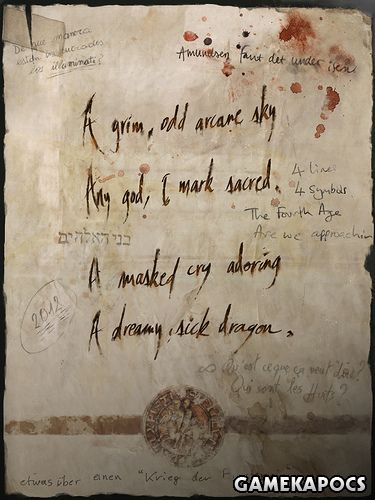 De que manera
están
los illuminati?
Amundsen fant det under isen
A grim, odd arcane sky
Any god, I mark sacred.
4 lines
4 symbols
The Fourth Age
Are we approachin
בני האלהים
A masked cry adoring
2012
A dreamy, sick dragon.
Qu'est ce que ça veut dire?
Qui sont les Huits?
etwas über einen "Krieg der
GAMEKAPOCS